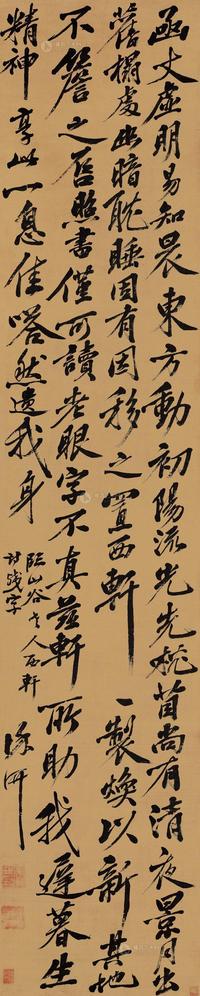 函丈虛明易知晨東方動初陽流光先挑茵尚有清夜景月出
舊榻處幽暗耽睡固有因移之置西軒一製煥以新其地
不簷之居照書僅可讀老眼字不真茲軒所助我遲暮生
精神享此一息佳嗒然遺我身
臨山谷老人西軒
詩殘字